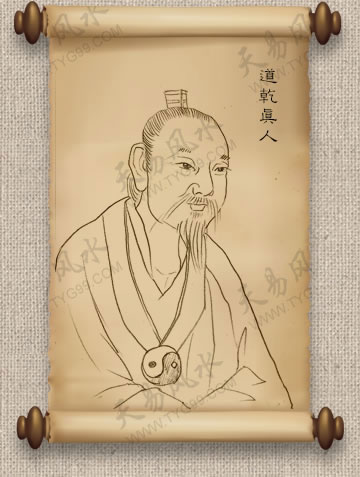 道乾眞人
天易风水
WWW.TYG99.COM
天易风水
WWW.TYG99.COM
天易风水
WWW.TYG99.COM
天易风水
WWW.TYG99.COM
天易风水
WWW.TYG99.COM